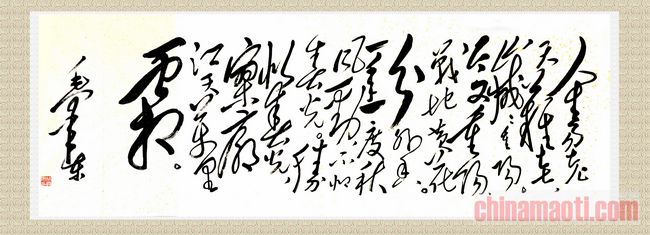 人生易老
天難老,
歲歲重陽。
今又重陽,
戰地黄花
分外香。
一年一度秋
風勁,不似
春光。勝
似春光,
寥廓
江天万里
霜。
毛澤東
chinamaoti.com